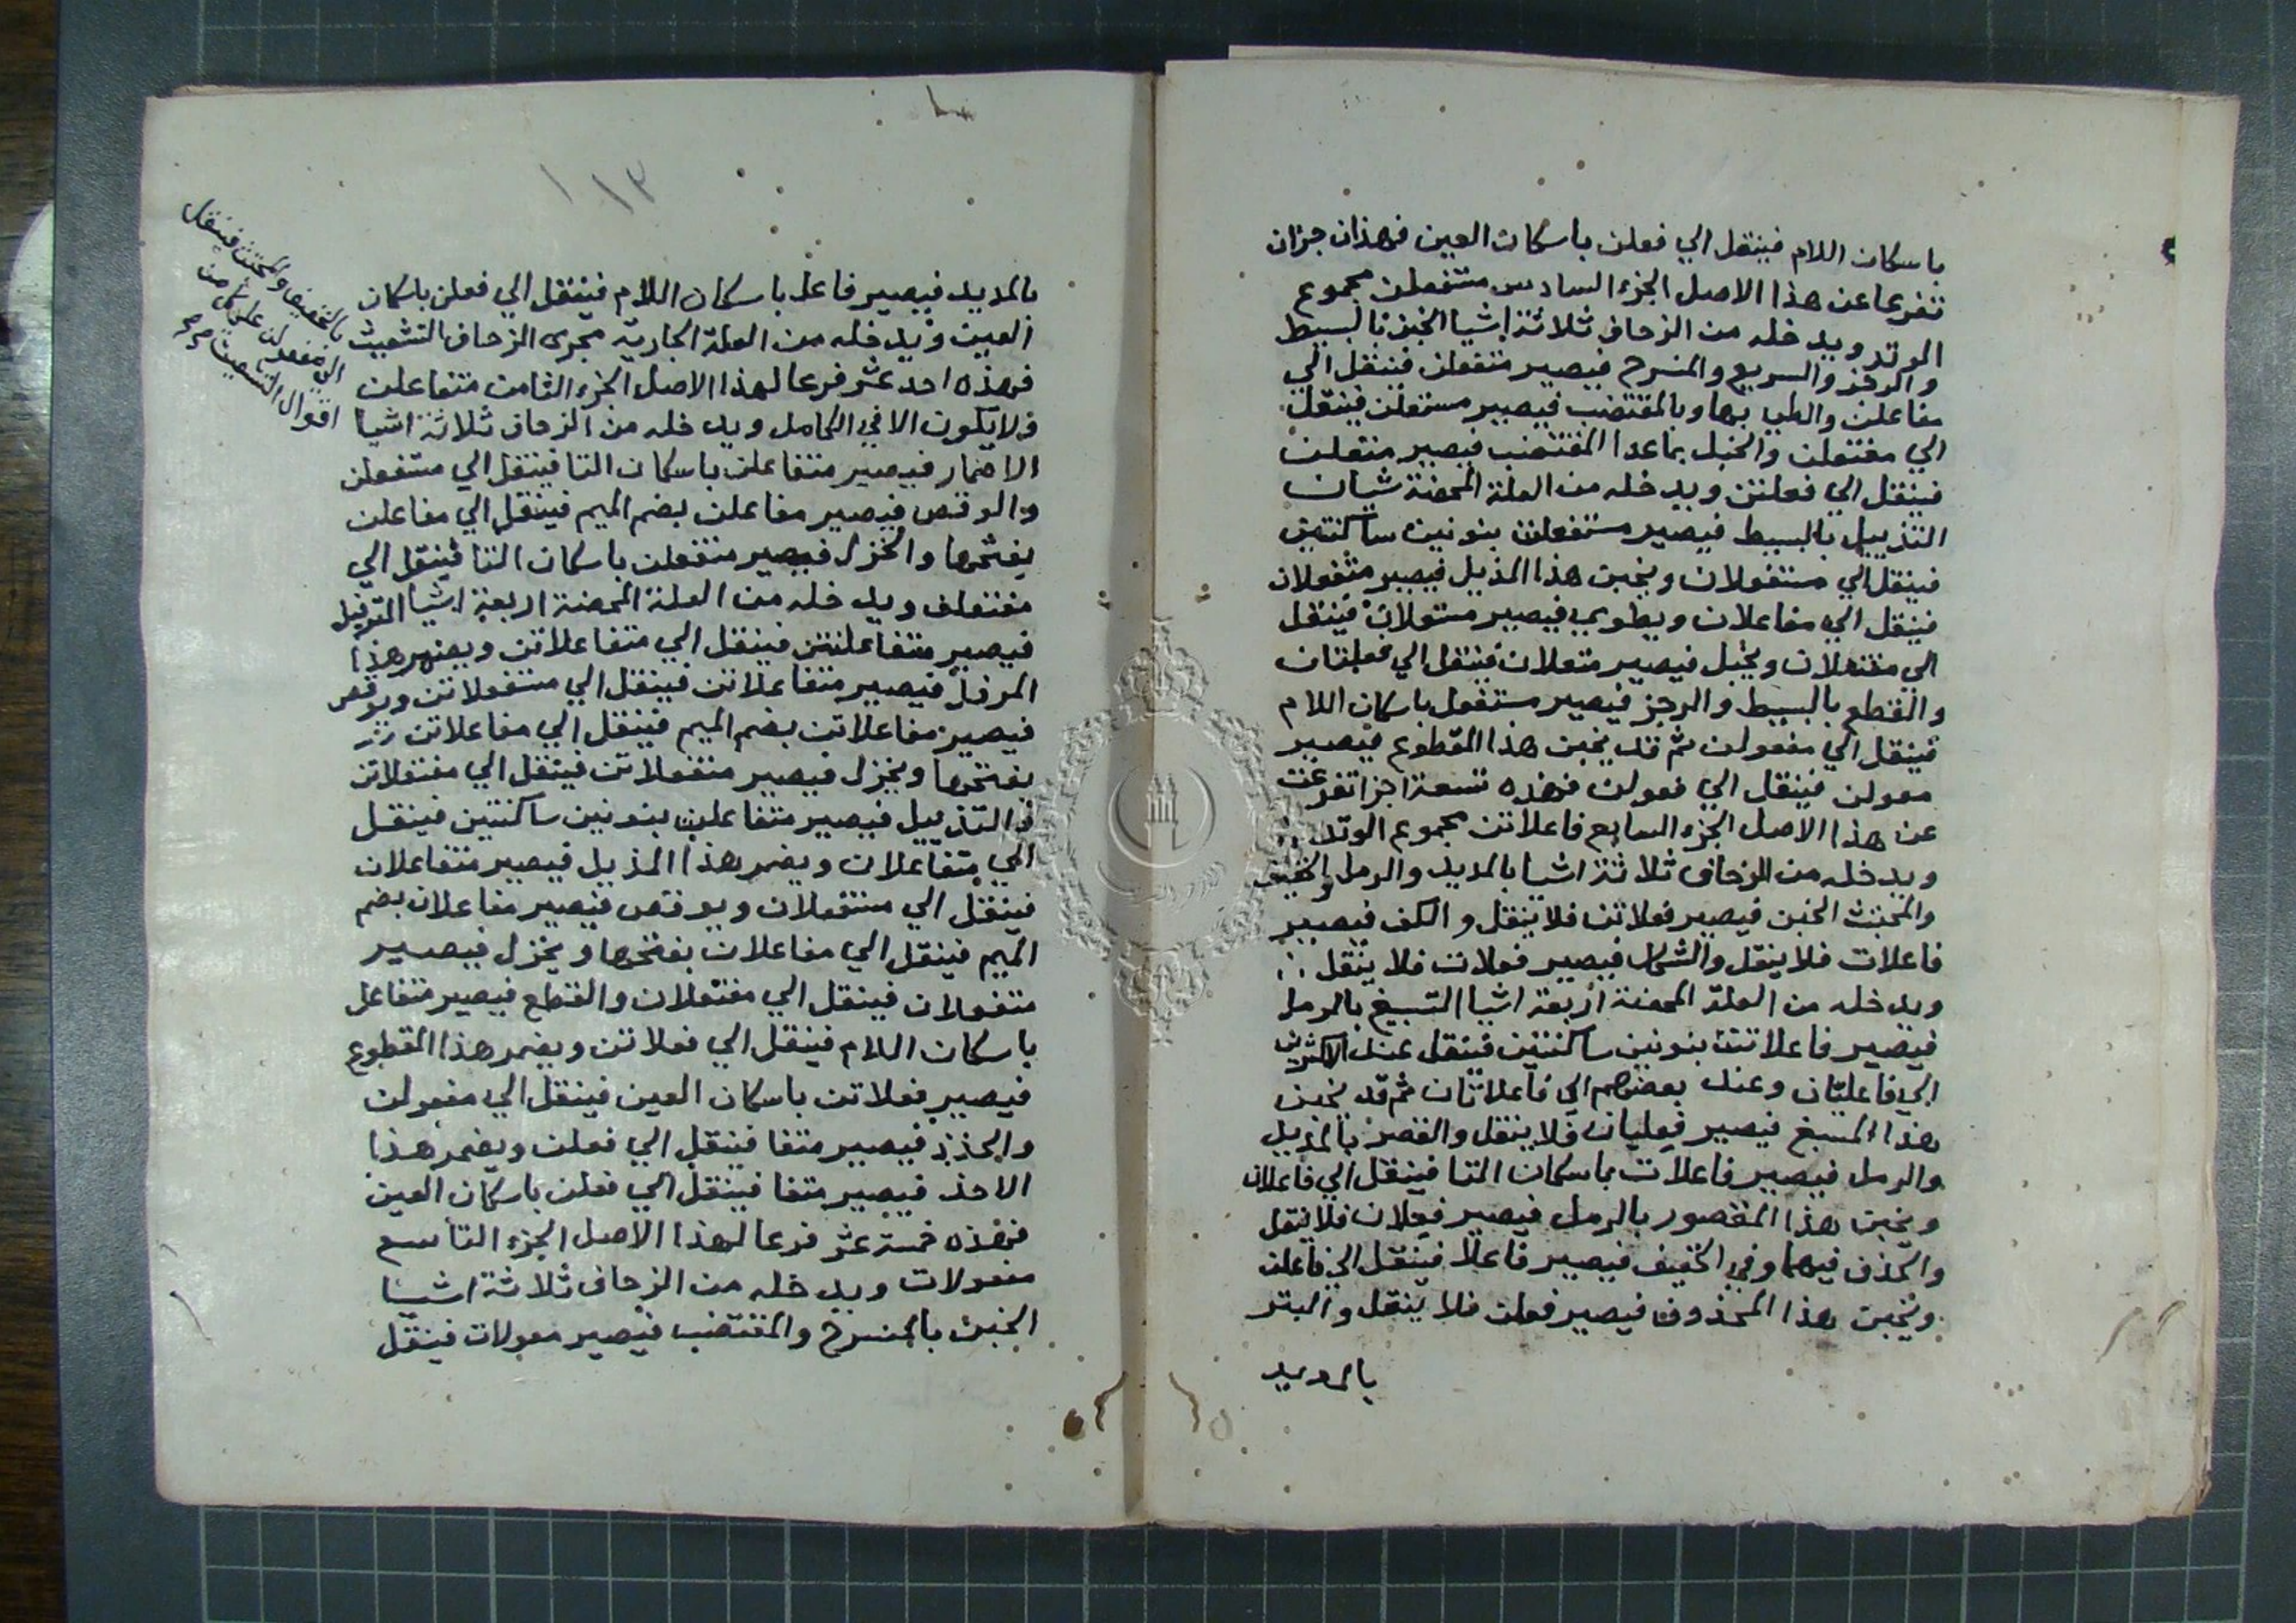 باسكان اللام فينتقل الي فعلن باسكان العين فهذان جزان
تفرعا عن هذا الاصل الجزء السادس مستفعلن مجموع
الوتد ويدخله من الزحاف ثلاثة اشيا الخبن بالبسيط
والرجز والسريع والمنسرح فيصير متفعلن فينتقل الي
مفاعلن والطي بها وبالمقتضب فيصير مستعلن فينتقل
الي مفتعلن والخبل بماعدا المقتضب فيصير متعلن
فينتقل الي فعلتن ويدخله من العلة المحضة شيان
التذييل بالبسيط فيصير مستفعلنن بنونين ساكنتين
فينتقل الي مستفعلان ويخبن هذا المذيل فيصير متفعلان
فينتقل الي مفاعلان ويطوي فيصير مستعلان فينتقل
الي مفتعلان ويخبل فيصير متعلان فينتقل الي فعلتان
والقطع بالبسيط والرجز فيصير مستفعل باسكان اللام
فينتقل الي مفعولن ثم قد يخبن هذا المقطوع فيصير
معولن فينتقل الي فعولن فهذه تسعة اجزا تفرعت
عن هذا الاصل الجزء السابع فاعلاتن مجموع الوتد
ويدخله من الزحاف ثلاثة اشيا بالمديد والرمل والخفيف
والمجتث الخبن فيصير فعلاتن فلا ينقل والكف فيصير
فاعلات فلا ينقل والشكل فيصير فعلات فلا ينقل
ويدخله من العلة المحضة اربعة اشيا التسبيغ بالرمل
فيصير فاعلاتنن بنونين ساكنتين فينتقل عند الاكثرين
الي فاعليان وعند بعضهم الي فاعلاتان ثم قد يخبن
هذا المسبغ فيصير فعليان فلا ينتقل والقصر بالمديل
والرمل فيصير فاعلات باسكان التا فينتقل الي فاعلان
ويخبن هذا المقصور بالرمل فيصير فعلان فلا ينتقل
والحذف فيهما وفي الخفيف فيصير فاعلا فينتقل الي فاعلن
ويخبن هذا المحذوف فيصير فعلن فلا ينقل والبتر
بالمديد
١١٣
بالمديد فيصير فاعل باسكان اللام فينتقل الي فعلن باسكان
العين ويدخله من العلة الجارية مجرى الزحاف التشعيث
بالخفيف والمجتث فينتقل
الي مفعولن علي كل من
اقوال التشعيث صح
فهذه احد عشر فرعا لهذا الاصل الجزء الثامن متفاعلن
ولا يكون الا في الكامل ويدخله من الزحاف ثلاثة اشيا
الاضمار فيصير متفاعلن باسكان التا فينتقل الي مستفعلن
والوقص فيصير مفاعلن بضم الميم فينتقل الي مفاعلن
بفتحها والخزل فيصير متفعلن باسكان التا فينتقل الي
مفتعلن ويدخله من العلة المحضة اربعة اشيا الترفيل
فيصير متفاعلنتن فينتقل الي متفاعلاتن ويضمر هذا
المرفل فيصير متفاعلاتن فينتقل الي مستفعلاتن ويوقص
فيصير مفاعلاتن بضم الميم فينتقل الي مفاعلاتن
بفتحها ويخزل فيصير متفعلاتن فينتقل الي مفتعلاتن
والتذييل فيصير متفاعلنن بنونين ساكنتين فينتقل
الي متفاعلان ويضمر هذا المذيل فيصير متفاعلان
فينتقل الي مستفعلان ويوقص فيصير مفاعلان بضم
الميم فينتقل الي مفاعلان بفتحها ويخزل فيصير
متفعلان فينتقل الي مفتعلان والقطع فيصير متفاعل
باسكان اللام فينتقل الي فعلاتن ويضمر هذا المقطوع
فيصير فعلاتن باسكان العين فينتقل الي مفعولن
والحذذ فيصير متفا فينتقل الي فعلن ويضمر هذا
الاحذ فيصير متفا فينتقل الي فعلن باسكان العين
فهذه خمسة عشر فرعا لهذا الاصل الجزء التاسع
مفعولات ويدخله من الزحاف ثلاثة اشيا
الخبن بالمنسرح والمقتضب فيصير معولات فينتقل